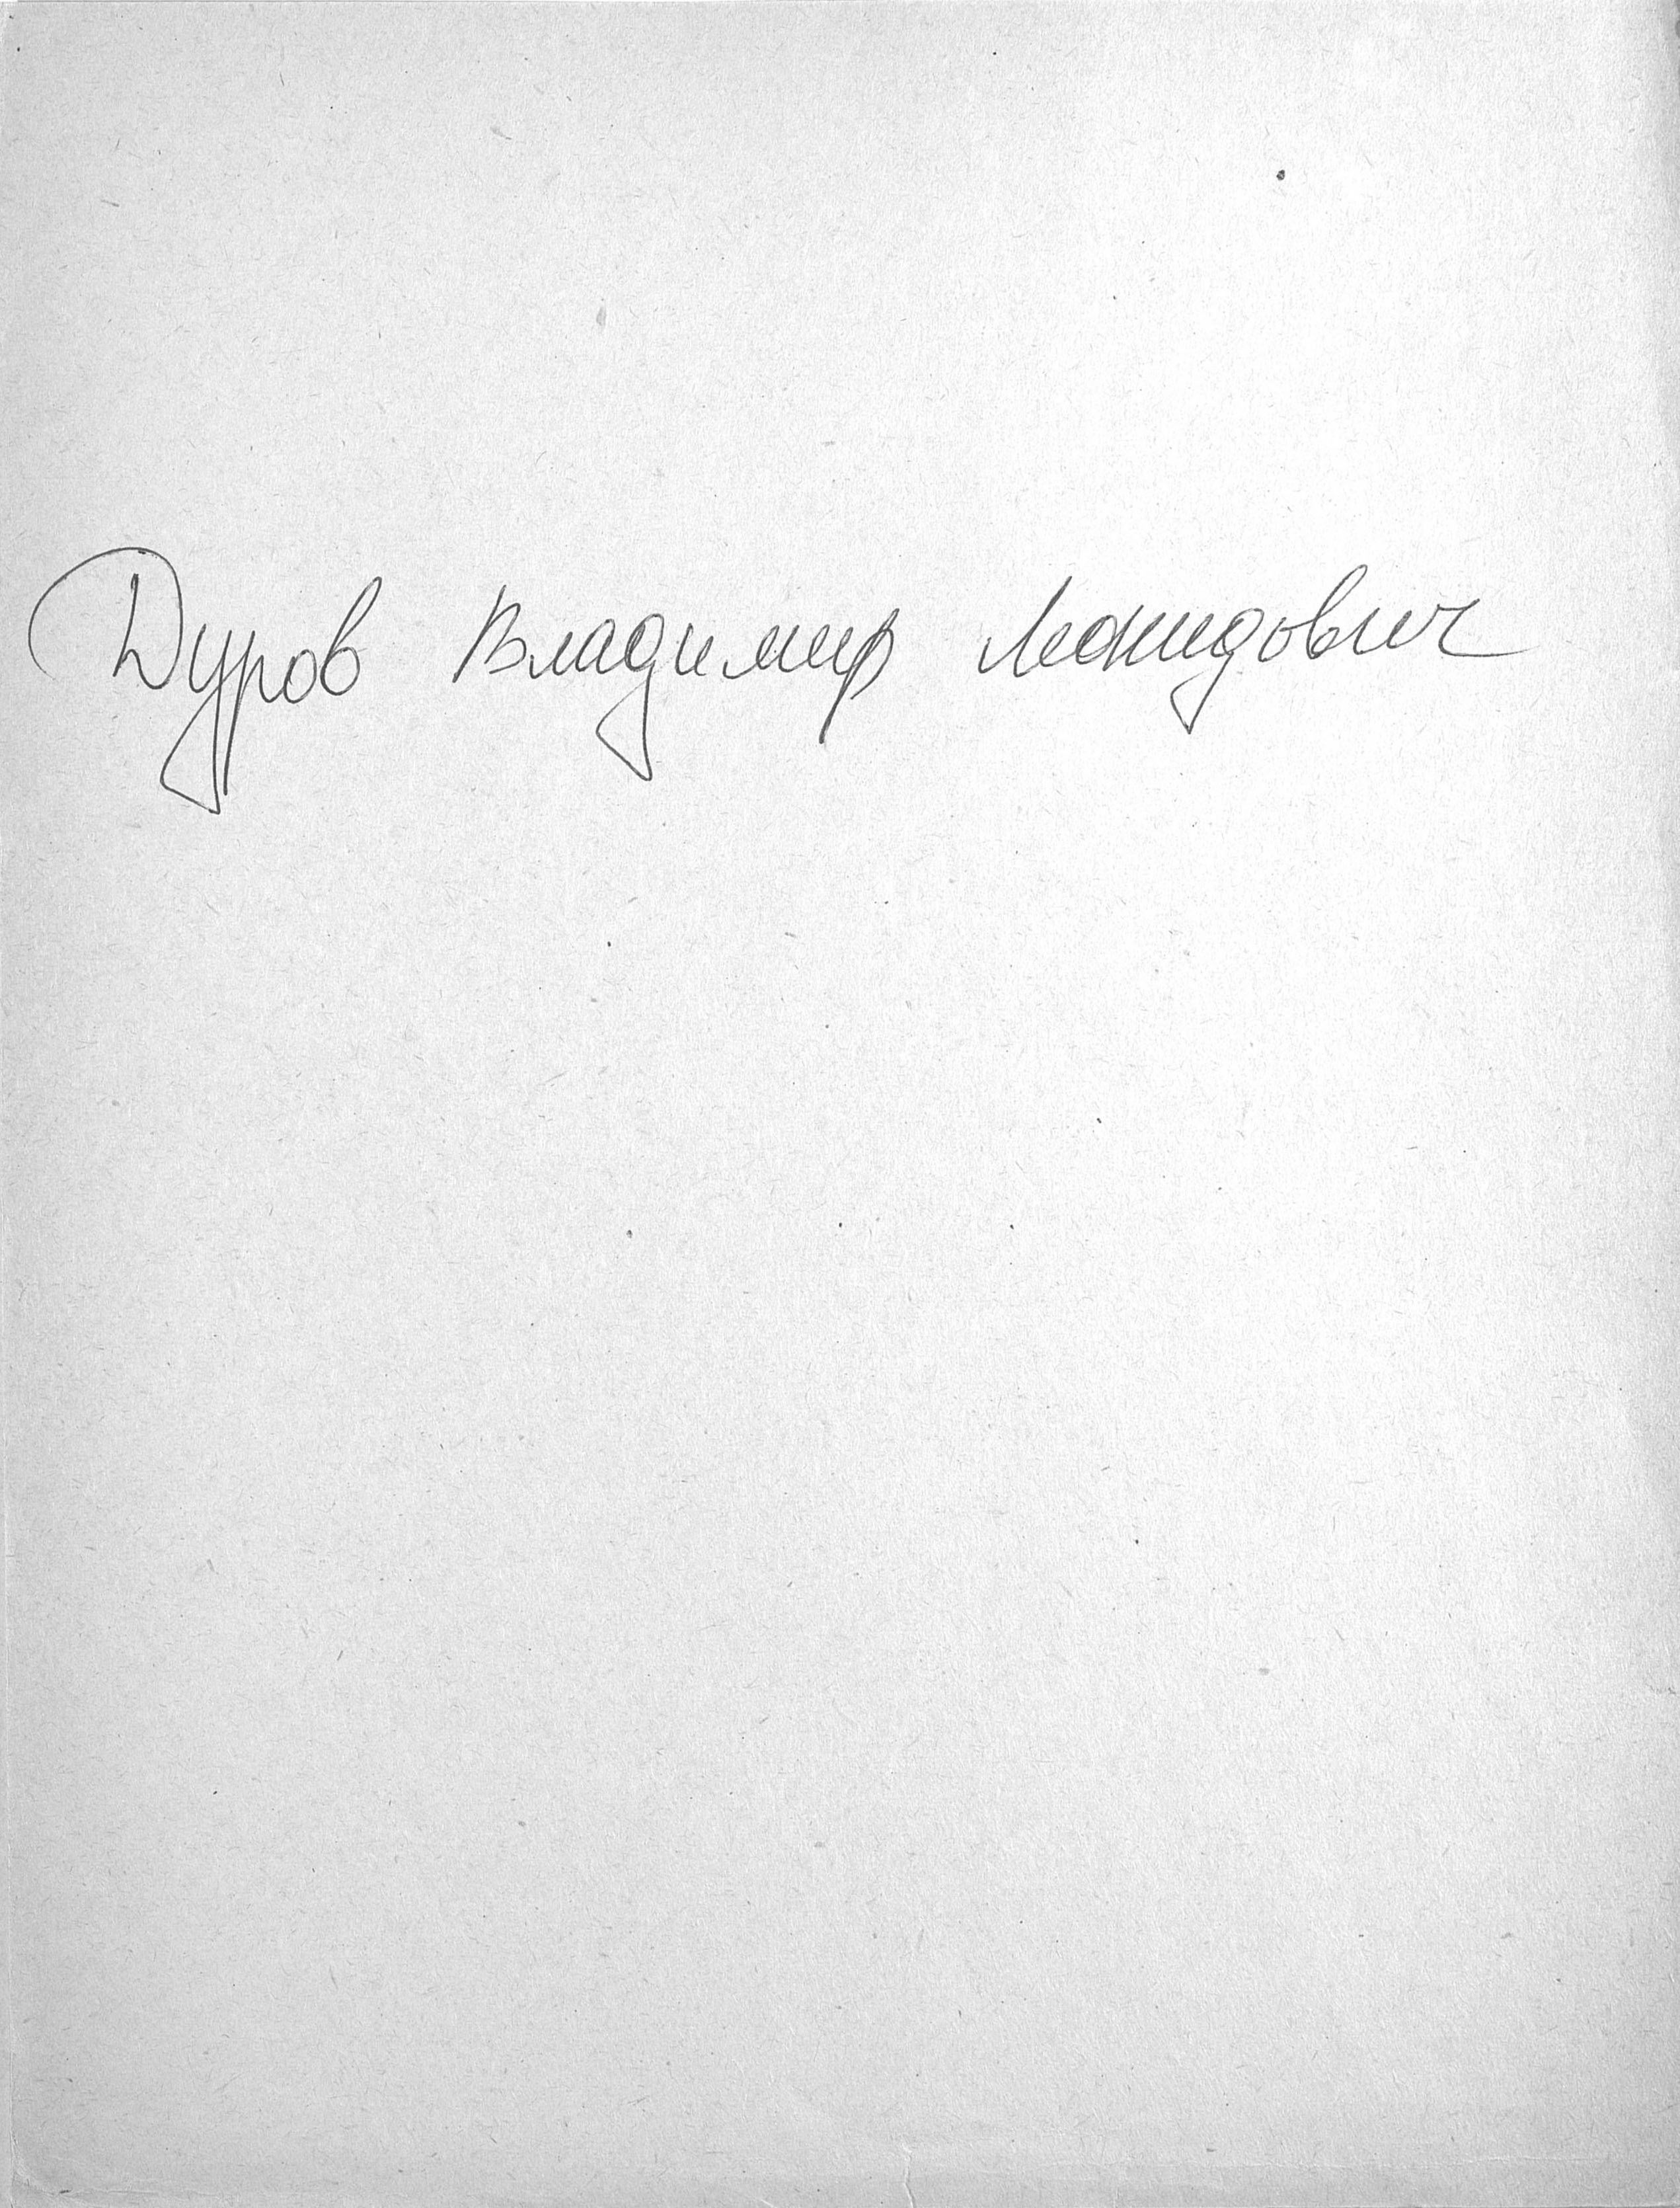 Дуров Владимир Леонидович